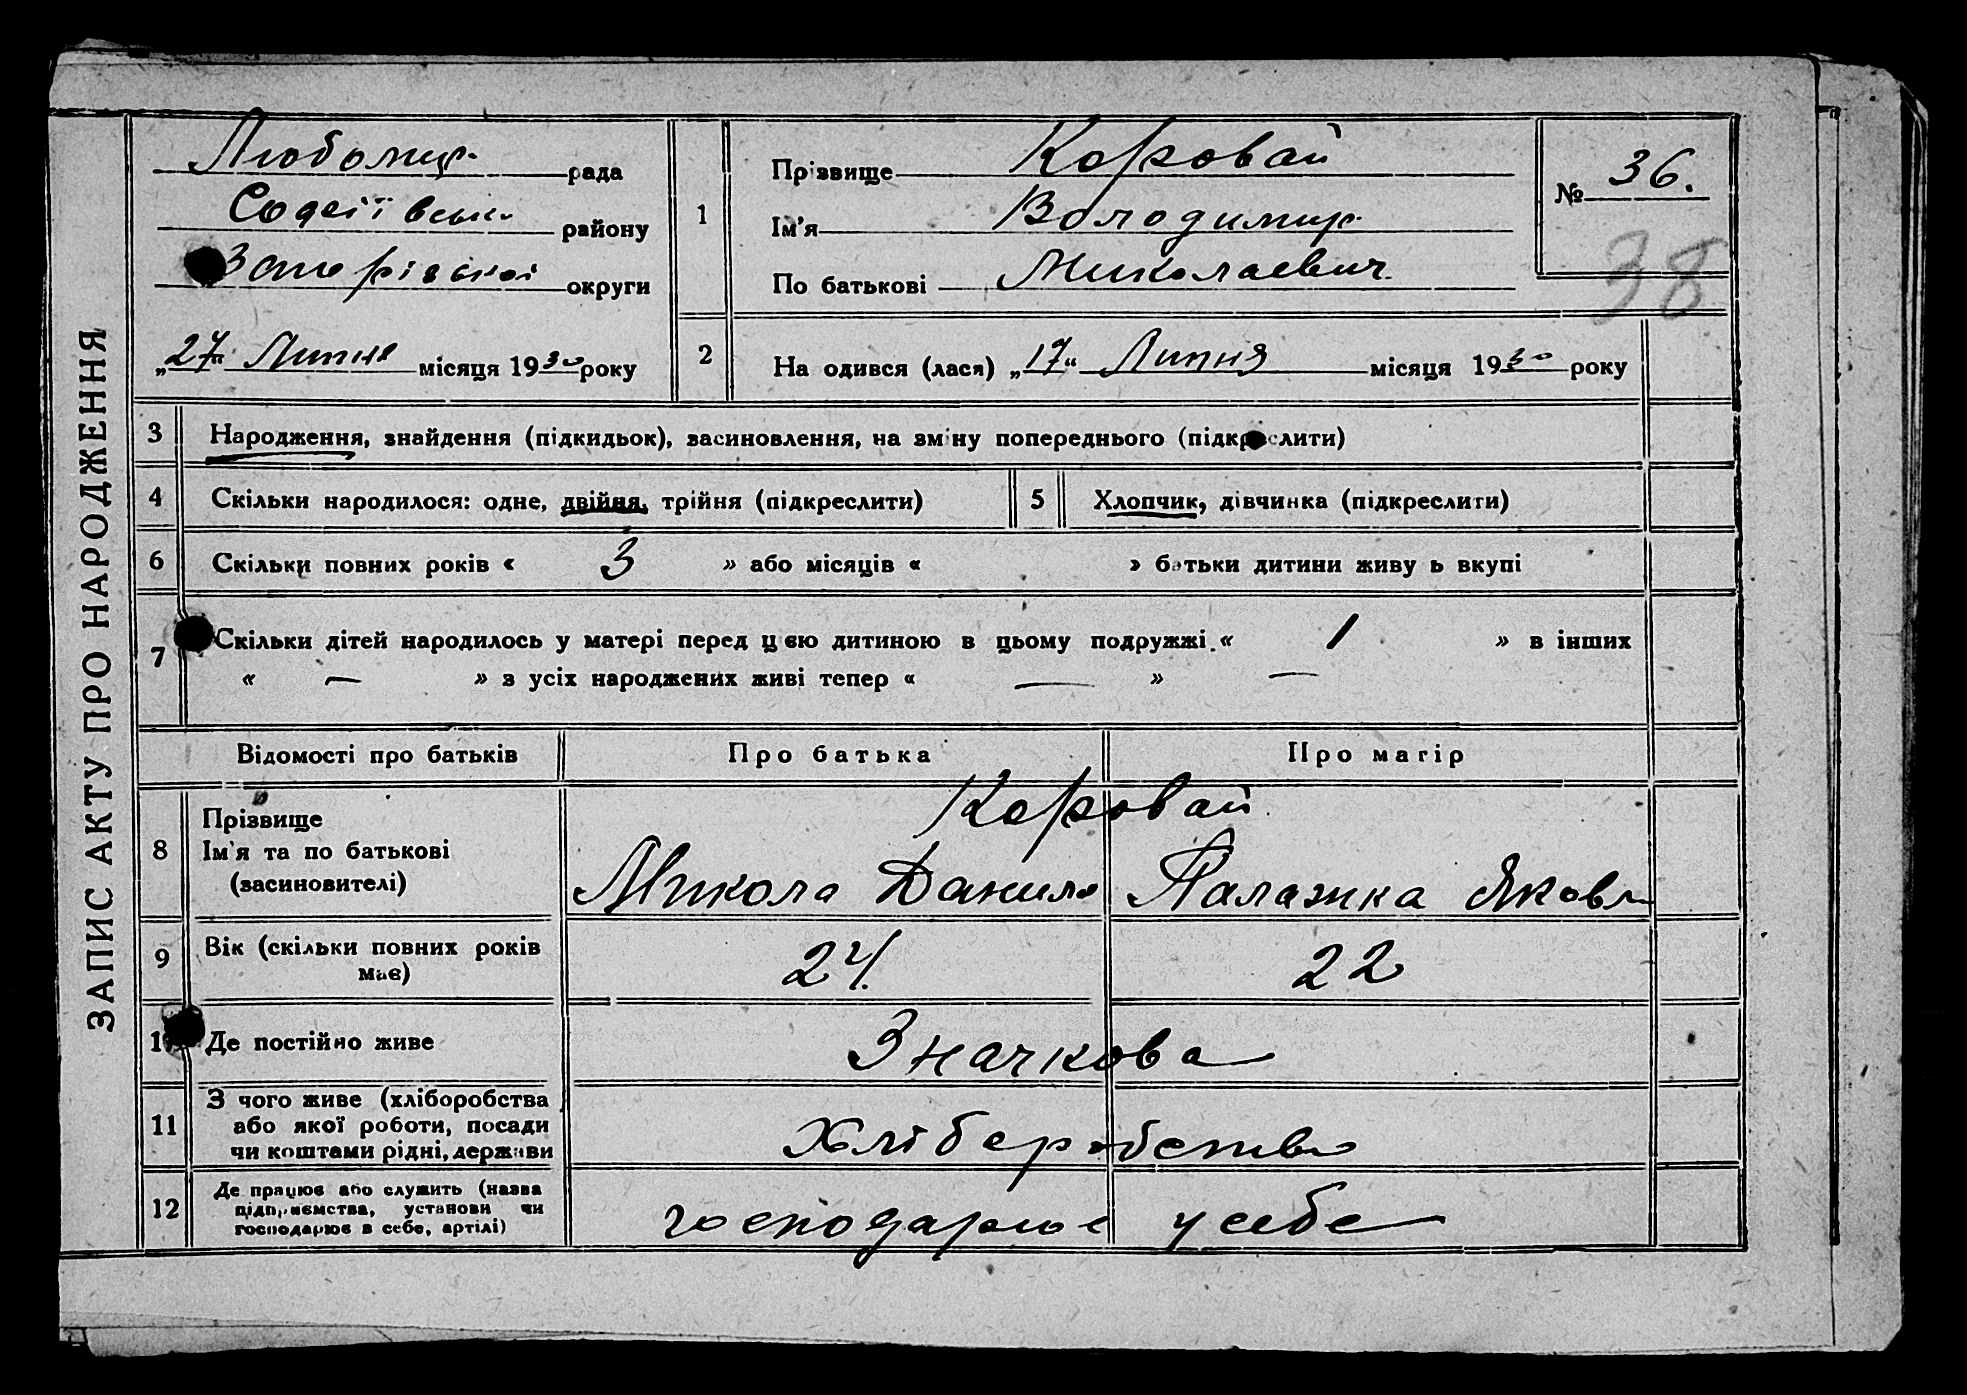 ЗАПИС АКТУ ПРО НАРОДЖЕННЯ
Любомир. рада
Софіївськ. району
Запорізької округи
„27“ Липня місяця 1930 року
1
Прізвище Коровай
Ім'я Володимир
По батькові Миколаевич
№ 36.
38
2 На одився (лася) „17“ Липня місяця 1930 року
3 Народження, знайдення (підкидьок), засиновлення, на зміну попереднього (підкреслити)
4 Скільки народилося: одне, двійня, трійня (підкреслити) 5 Хлопчик, дівчинка (підкреслити)
6 Скільки повних років « 3 » або місяців « » батьки дитини живу ь вкупі
7 Скільки дітей народилось у матері перед цією дитиною в цьому подружжі « 1 » в інших
« — » з усіх народжених живі тепер « — » —
Відомості про батьків Про батька Про матір
8 Прізвище
Ім'я та по батькові
(засиновителі)
Коровай
Микола Данило Палажка Яковл
9 Вік (скільки повних років
має)
24. 22
10 Де постійно живе Значкова
11 З чого живе (хліборобства
або якої роботи, посади
чи коштами рідні, держави
Хліборобство
12 Де працює або служить (назва
підприємства, установи чи
господарює в себе, артілі)
господарює у себе